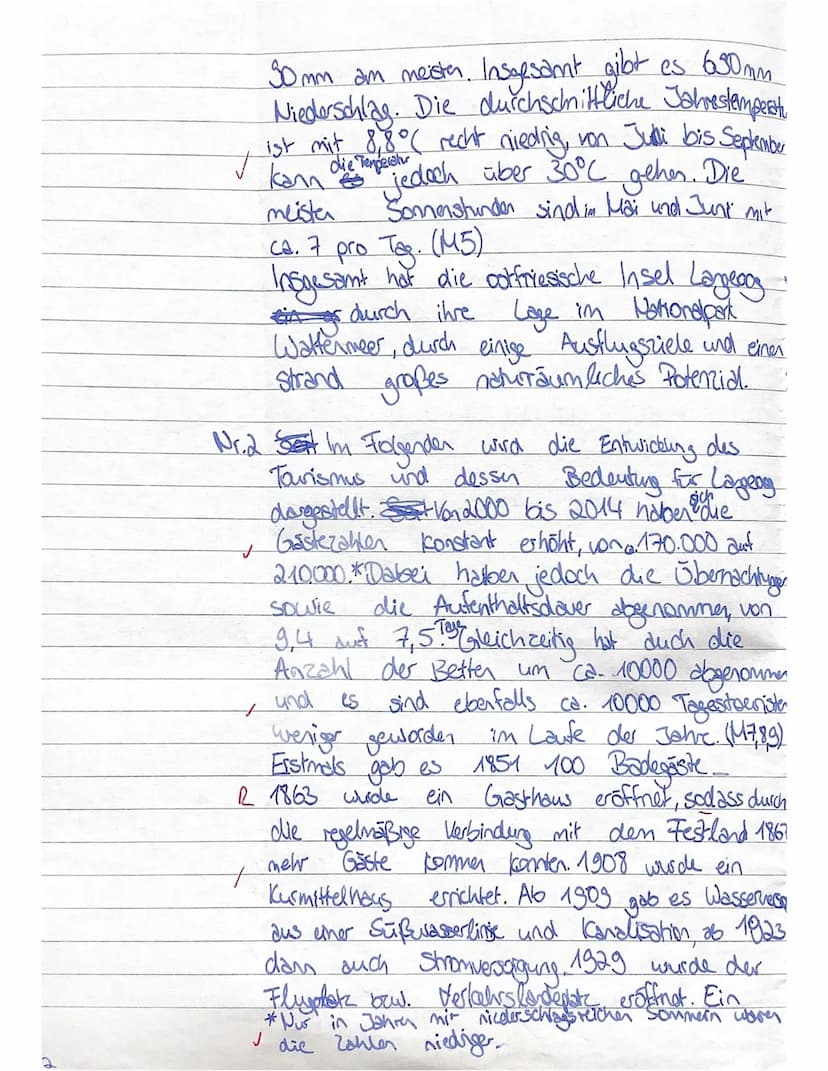 90mm am meisten. Insgesamt gibt es 690mm
Niederschlag. Die durchschnittliche Jahrestemperatu
ist mit 8,8°C recht niedrig, von Juli bis September
kann die Temperatur jedoch über 30°C gehen. Die
meisten Sonnenstunden sind im Mai und Juni mit
ca. 7 pro Tag. (M5)
Insgesamt hat die ostfriesische Insel Langeoog
durch ihre Lage im Nationalpark
Wattenmeer, durch einige Ausflugsziele und einen
Strand großes naturräumliches Potenzial.
Nr.2 Im Folgenden wird die Entwicklung des
Tourismus und dessen Bedeutung für Langeoog
dargestellt. Von 2000 bis 2014 haben sich die
Gästezahlen konstant erhöht, von ca. 170.000 auf
210000.* Dabei haben jedoch die Übernachtungen
sowie die Aufenthaltsdauer abgenommen, von
9,4 auf 7,5 Tage. Gleichzeitig hat auch die
Anzahl der Betten um ca. 10000 abgenommen
und es sind ebenfalls ca. 10000 Tagestouristen
weniger geworden im Laufe der Jahre. (M7,8,9)
Erstmals gab es 1851 100 Badegäste.
R 1863 wurde ein Gasthaus eröffnet, sodass durch
die regelmäßige Verbindung mit dem Festland 1867
mehr Gäste kommen konnten. 1908 wurde ein
Kurmittelhaus errichtet. Ab 1909 gab es Wasserverso
aus einer Süßwasserlinse und Kanalisation, ab 1923
dann auch Stromversorgung. 1929 wurde der
Flugplatz bzw. Verkehrslandeplatz eröffnet. Ein
*Nur in Jahren mit niederschlagsreichen Sommern waren
die Zahlen niediger.
2